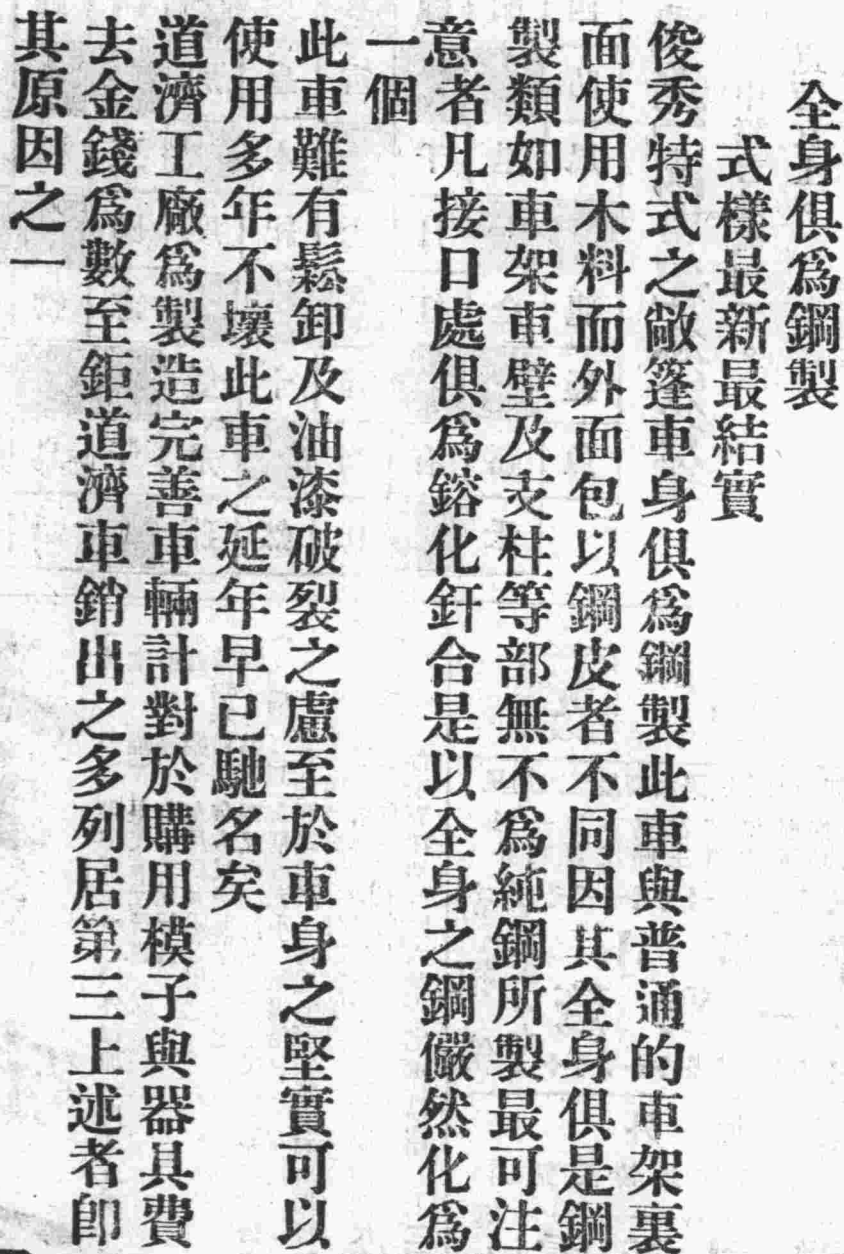 全身俱爲鋼製
式樣最新最結實
俊秀特式之敞篷車身俱爲鋼製此車與普通的車架裏
面使用木料而外面包以鋼皮者不同因其全身俱是鋼
製類如車架車壁及支柱等部無不爲純鋼所製最可注
意者凡接口處俱爲鎔化釬合是以全身之鋼儼然化爲
一個
此車難有鬆卸及油漆破裂之慮至於車身之堅實可以
使用多年不壞此車之延年早已馳名矣
道濟工廠爲製造完善車輛計對於購用模子與器具費
去金錢爲數至鉅道濟車銷出之多列居第三上述者卽
其原因之一